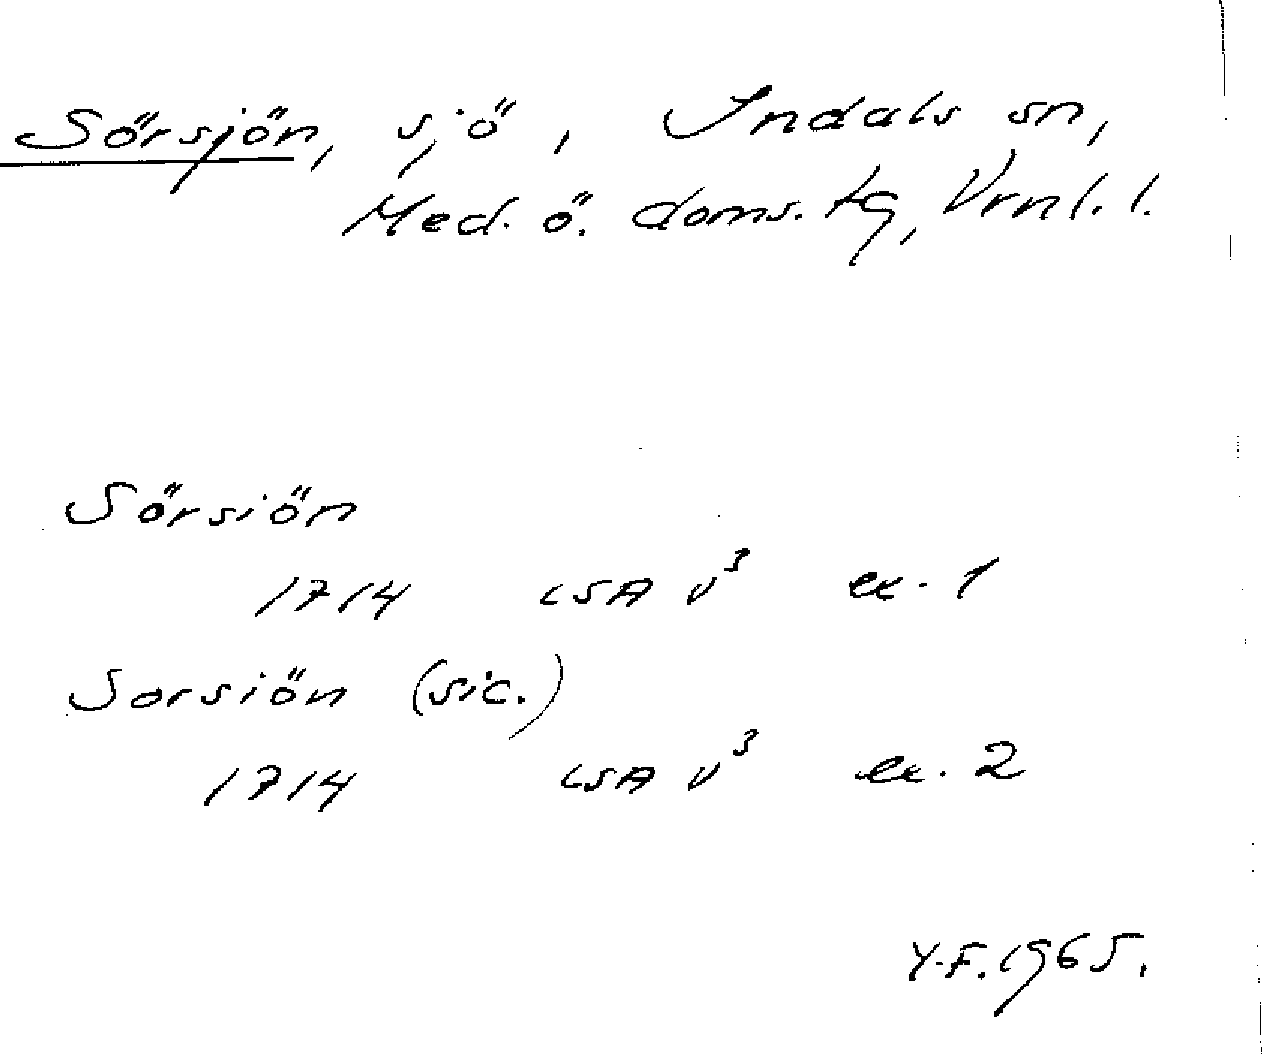 Sörsjön, sjö, Indals sn,
Med. ö. doms. tg, Vrnl. l.
Sörsiön
1714 LSA V³ ex. 1
Sorsiön (sic.)
1714 LSA V³ ex. 2
Y.F. 1965.